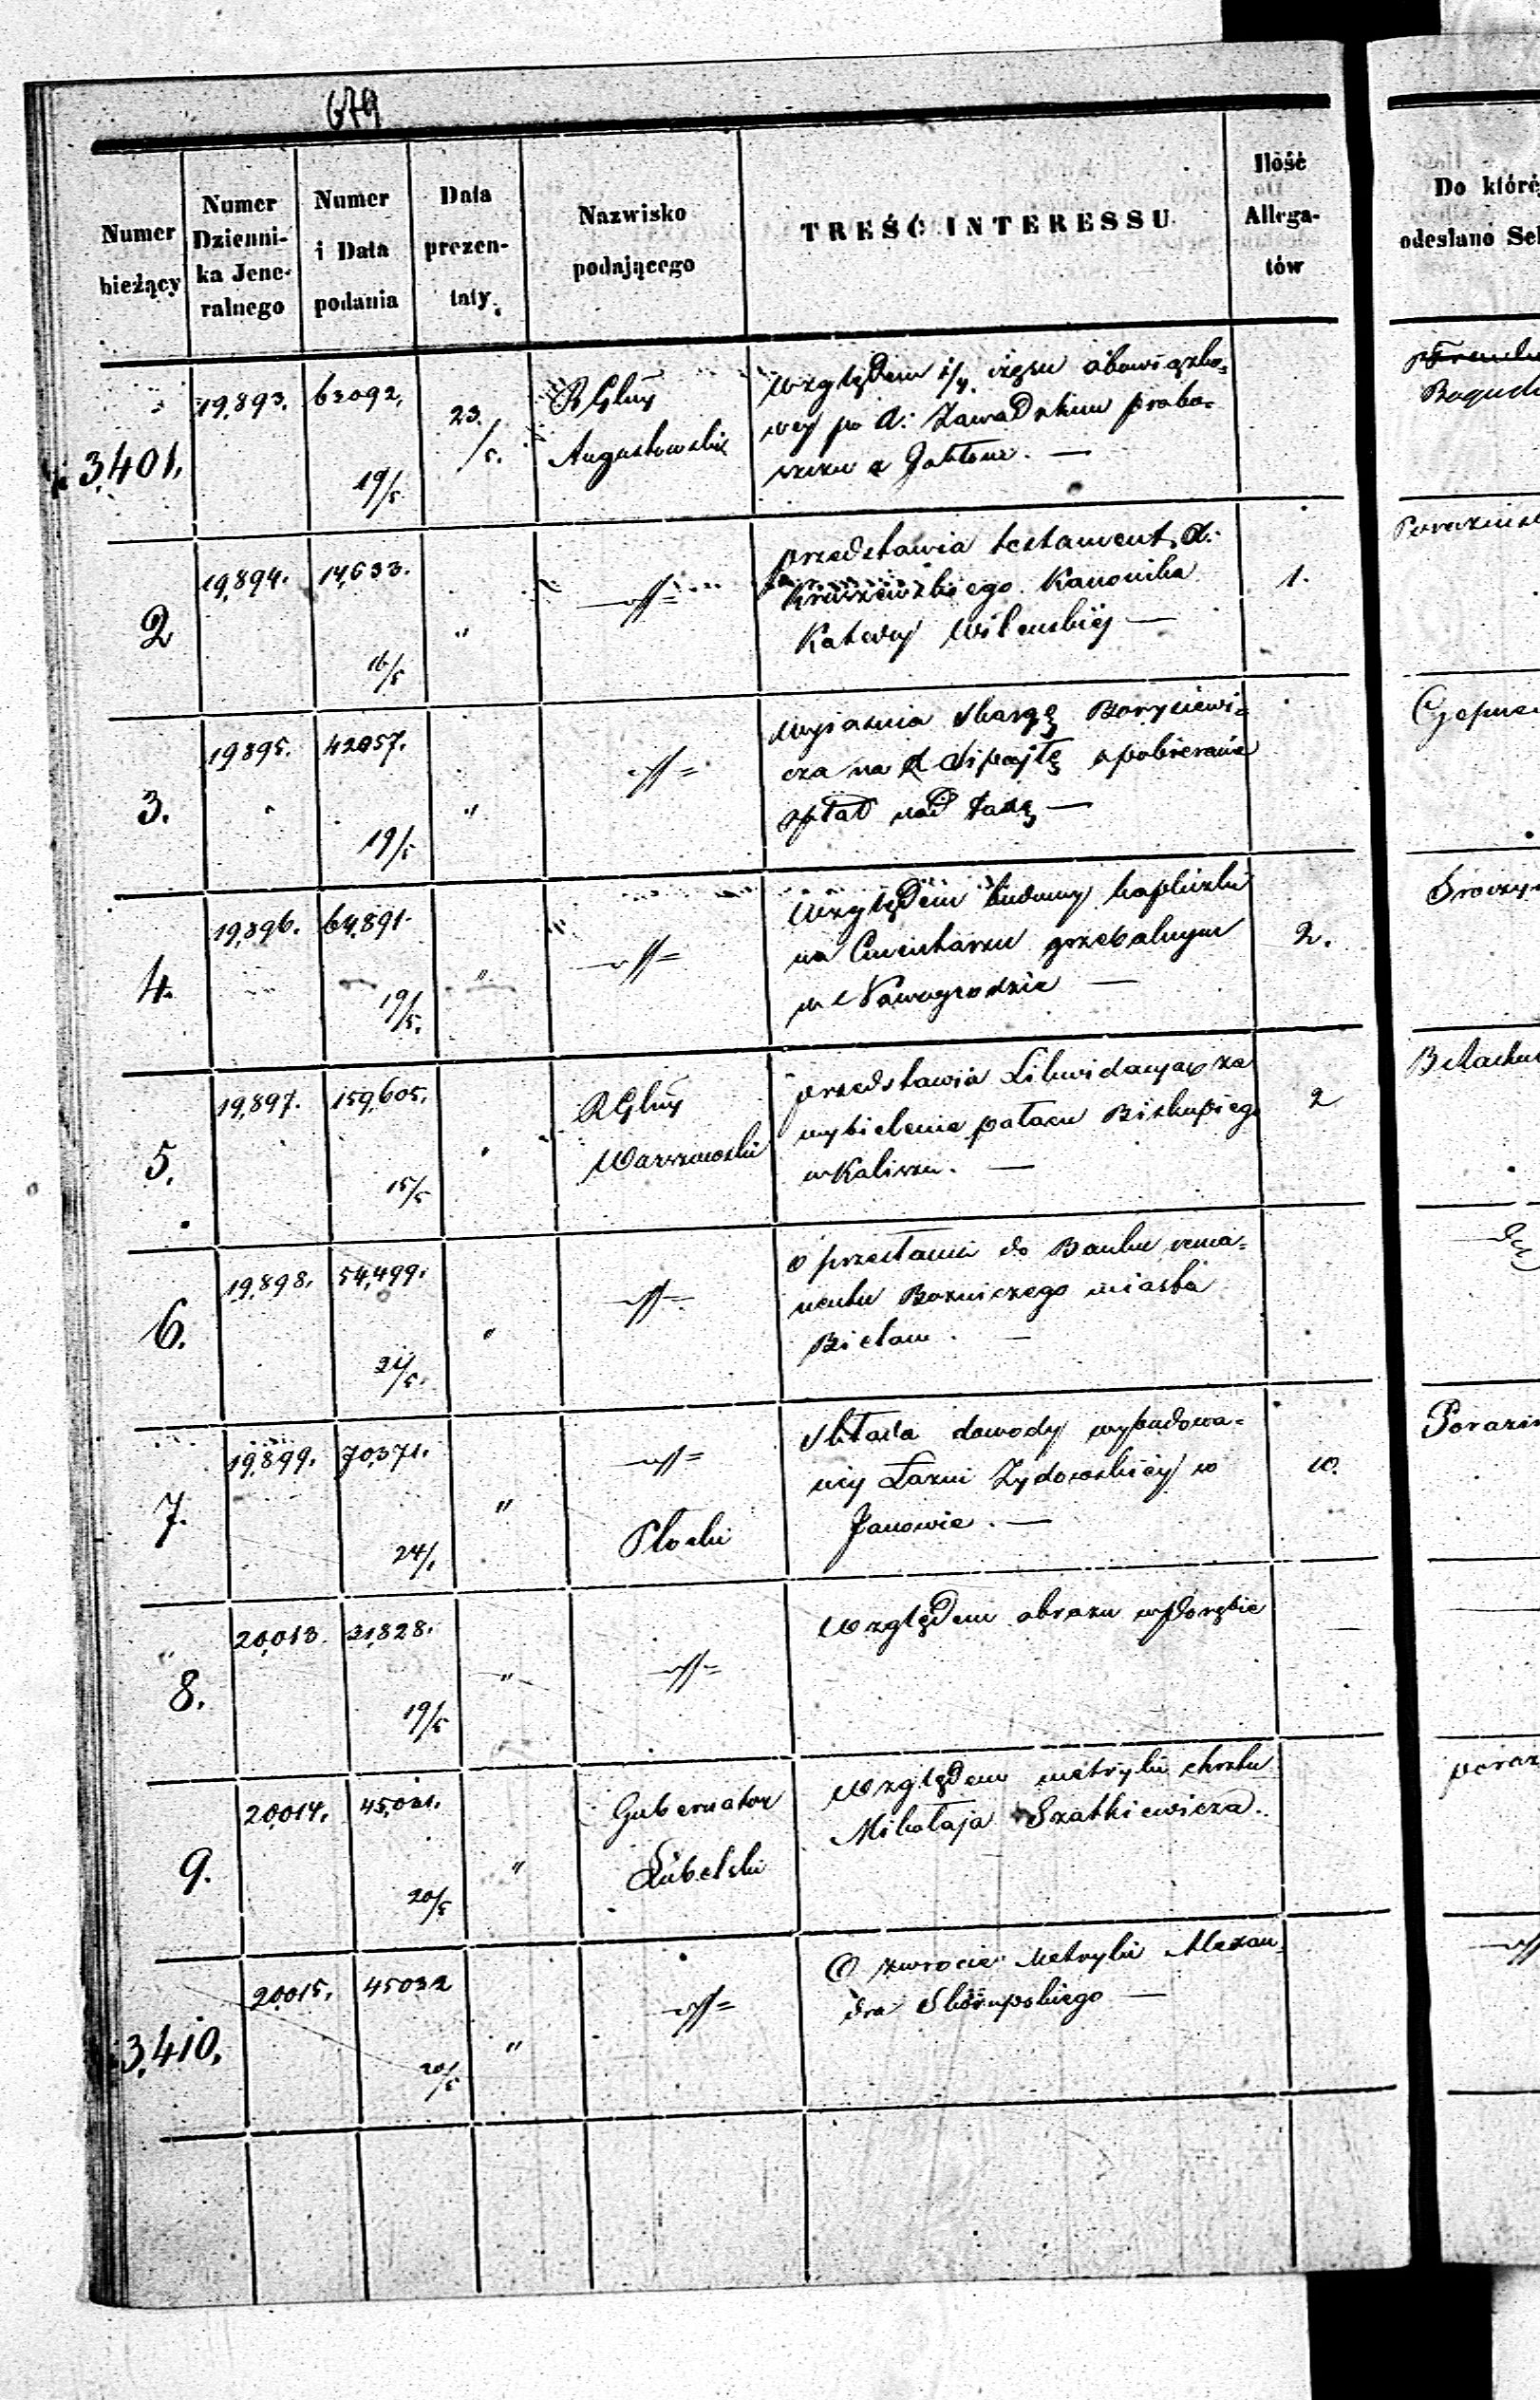 679
Numer bieżący | Numer Dzienni- ka Jene- ralnego | Numer i Data podania | Data prezen- taty. | Nazwisko podającego | TREŚĆ INTERESSU | Ilość Allega- tów | Do które
odesłano Se
3,401. | 19,893. | 62092, 19/5 | 23./5. | RGlny Augustowski
Względem 1/4. części obowiązko=
wej po X: Zawadzkim probo=
szczu z Jabłoni. —
2 | 19,894. | 14,633. 16/5 | "
przedstawia testament X:
Kruszewskiego Kanonika
Katedry Wileńskiej — | 1.
3. | 19895. | 42057. 19/5 | "
Wyjaśnia skargę Borysiewi=
cza na X Lipajłę o pobieranie
opłat nad taxę —
4. | 19,896. | 64,891. 19/5. | "
Względem budowy kapliczki
na Cmentarzu grzebalnym
w Nowogrodzie — | 2.
5. | 19,897. | 159,605. 15/5 | RGlny Warszawski
przedstawia Likwidacyą za
wybielenie pałacu Biskupiego
w Kaliszu. — | 2
6. | 19,898. | 54,499. 21/5. | "
o przesłaniu do Banku rema=
nentu Bożniczego miasta
Bielaw. —
7. | 19,899. | 70,371. 24/ | " | Płocki
Składa dowody wybudowa=
nej Łazni Zydowskiej w
Janowie. — | 10.
8. | 20,013. | 31,828. 19/5 | "
Względem obrazu w Porębie
9. | 20,014. | 45,021. 20/5 | " | Gubernator Lubelski
Względem metryki chrztu
Mikołaja Szatkiewicza.
3,410. | 20,015. | 45032 20/5 | "
O zwrocie Metryki Alexan=
dra Skorupskiego —